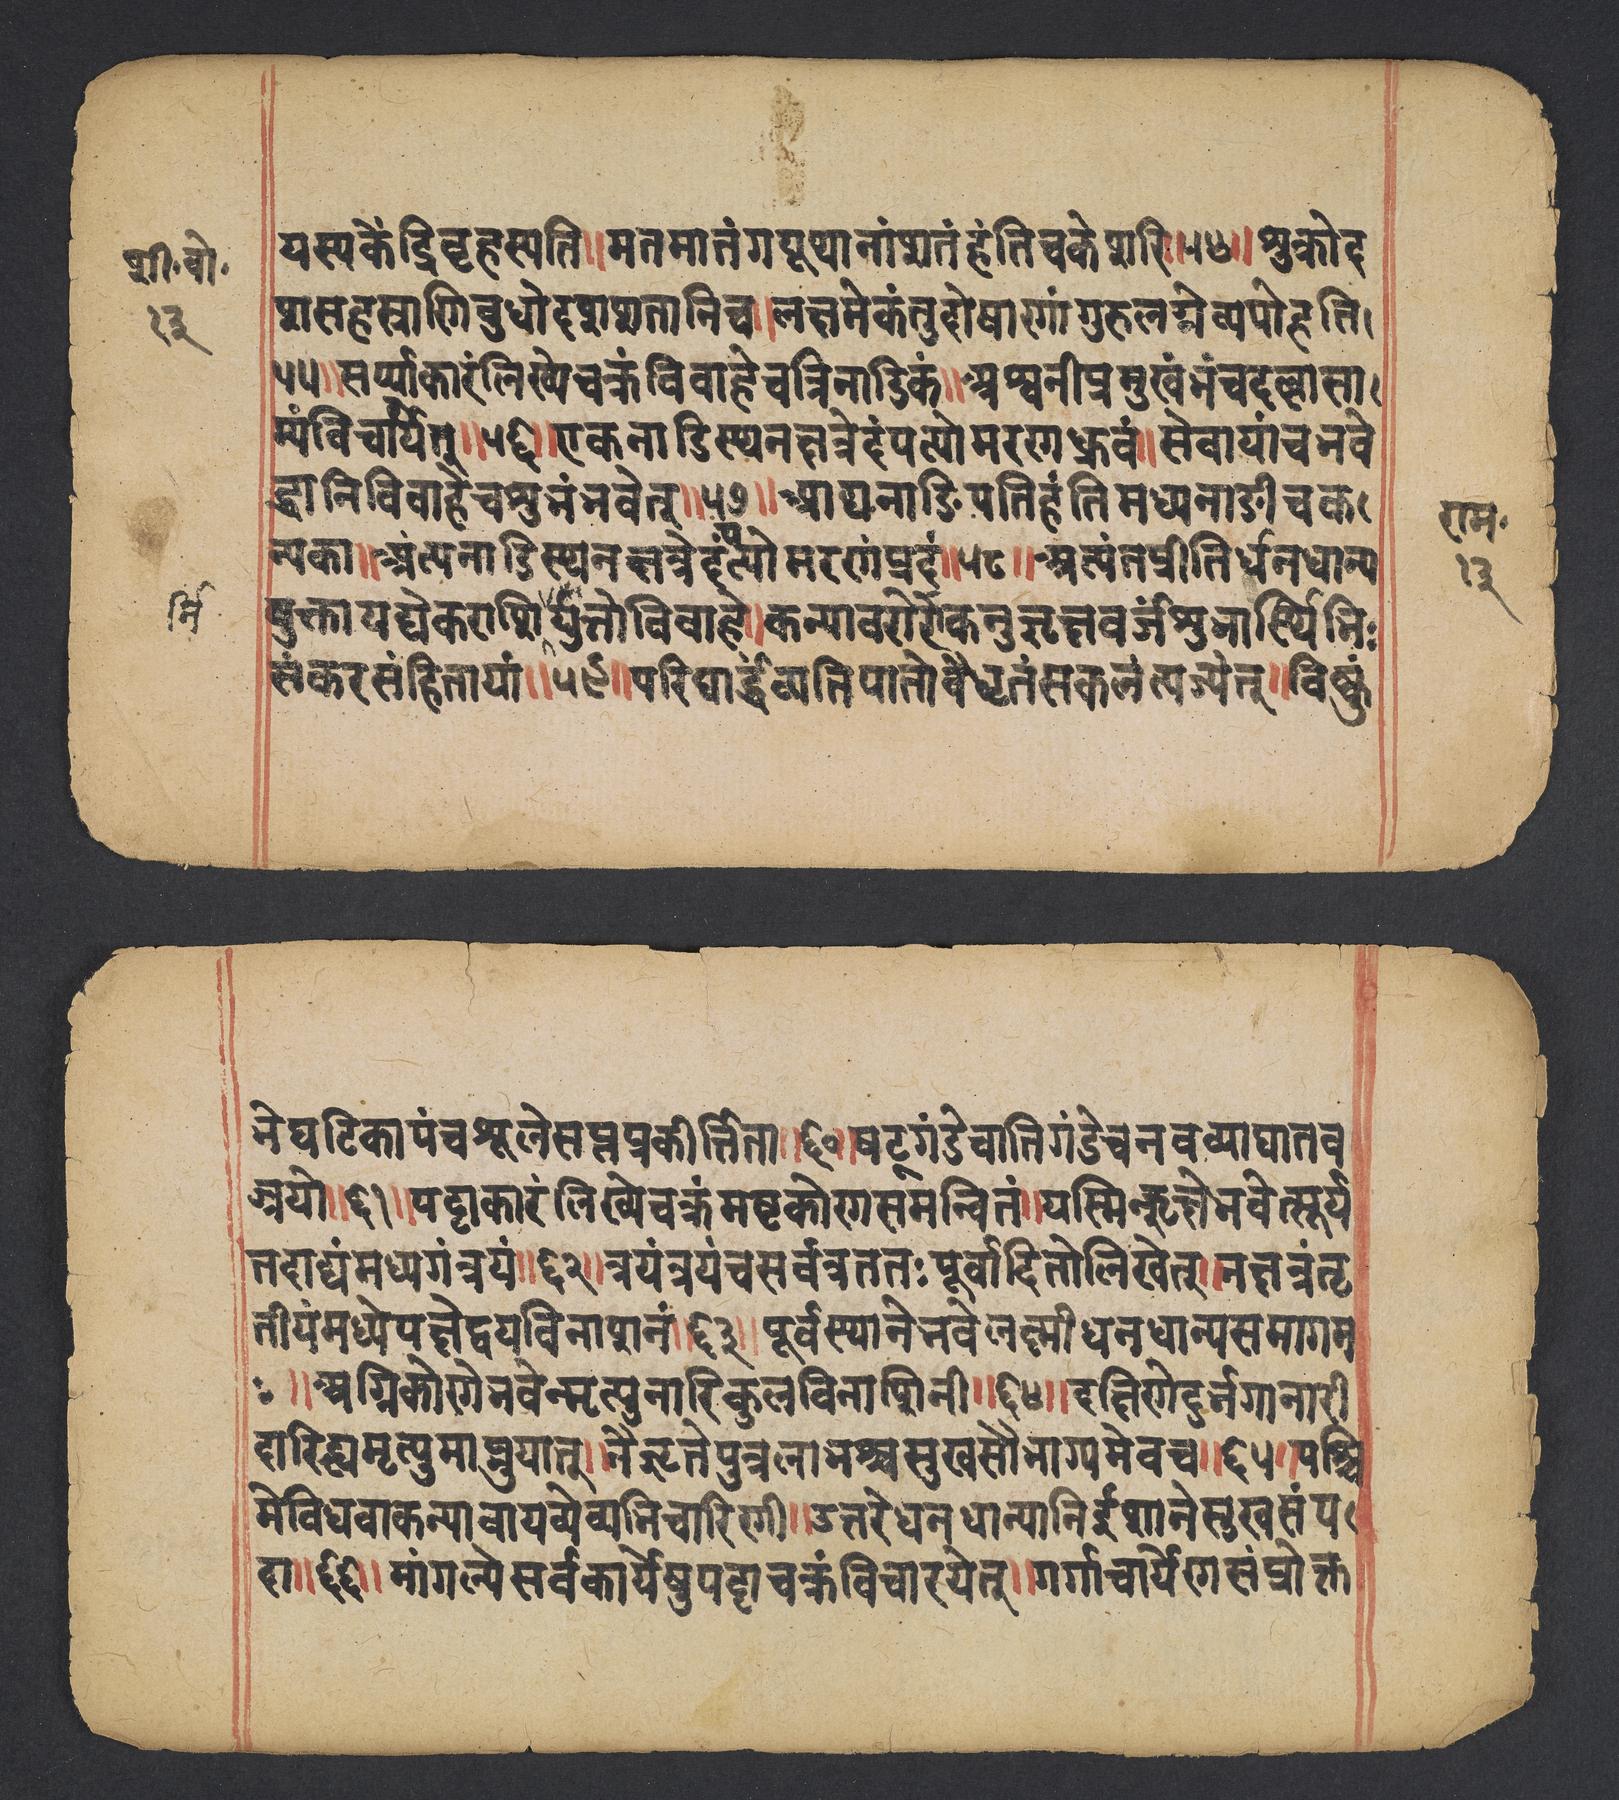 शी॰वो॰
१३
यस्यकेंद्रिवृहस्पति॥मतमातंगयूथानांशतंहंतिचकेशरि॥५४॥शुक्रोद
शसहस्राणिबुधोदशशतानिच॥लक्षमेकंतुदोषाणांगुरुलग्नेव्यपोहति।
५५॥सर्प्पाकारंलिख्येचक्रंविवाहेचत्रिनाडिकं॥अश्वनीप्रमुखंभंच
म्यंविचार्येत्॥५६॥एकनाडिस्थनक्षत्रेदंपत्योमरणध्रुवं॥सेवायांचभवे
द्धानिविवाहेचशुभंभवेत्॥५७॥आद्यनाडिपतिहंतिमध्यनाडीचक
न्यका॥अंत्यनाडिस्थनक्षत्रेदंपत्योमरणंप्रदं॥५८॥अत्यंतप्रीतिर्धनधान्य
युक्तायद्येकराशिर्युत्तोविवाहे॥कन्यावरो
संकरसंहितायां॥५९॥परिघार्द्धंव्यतिपातोवैधृतंसकलंत्यज्येत्॥विष्कुं
राम॰
१३
भेघटिकापंचश्रूलेसप्तप्रकीर्त्तिता॥६०॥षट्गंडेचातिगंडेचनवव्याघातव
ज्रयो॥६१॥पट्टाकारंलिख्येचक्रंमष्टकोणसमन्वितं॥यस्मिन्ऋक्षेभवेत्सूर्य
तदाद्यंमध्यगंत्रयं॥६२॥त्रयंत्रयंचसर्वत्रततः पूर्वादितोलिखेत्॥नक्षत्रंतृ
तीयंमध्येपक्षेद्वयविनाशनं॥६३॥पूर्वस्थानेभवेलक्ष्मीधनधान्यसमागम
ः॥अग्निकोणेभवेन्मृत्युनारिकुलविनाशिनी॥६४॥दक्षिणेदुर्भगानारी
दारिद्र्यमृत्युमाप्नुयात्॥नैऋतेपुत्रलाभश्चसुखसौभाग्यमेवच॥६५॥पश्चि
मेविधवाकन्यावायव्येव्यभिचारिणी॥उत्तरेधनधान्यानिईशानेसुखसंप
दा॥६६॥मांगल्येसर्वकार्येषुपट्टाचक्रंविचारयेत्॥गर्गाचार्येणसंप्रोक्त